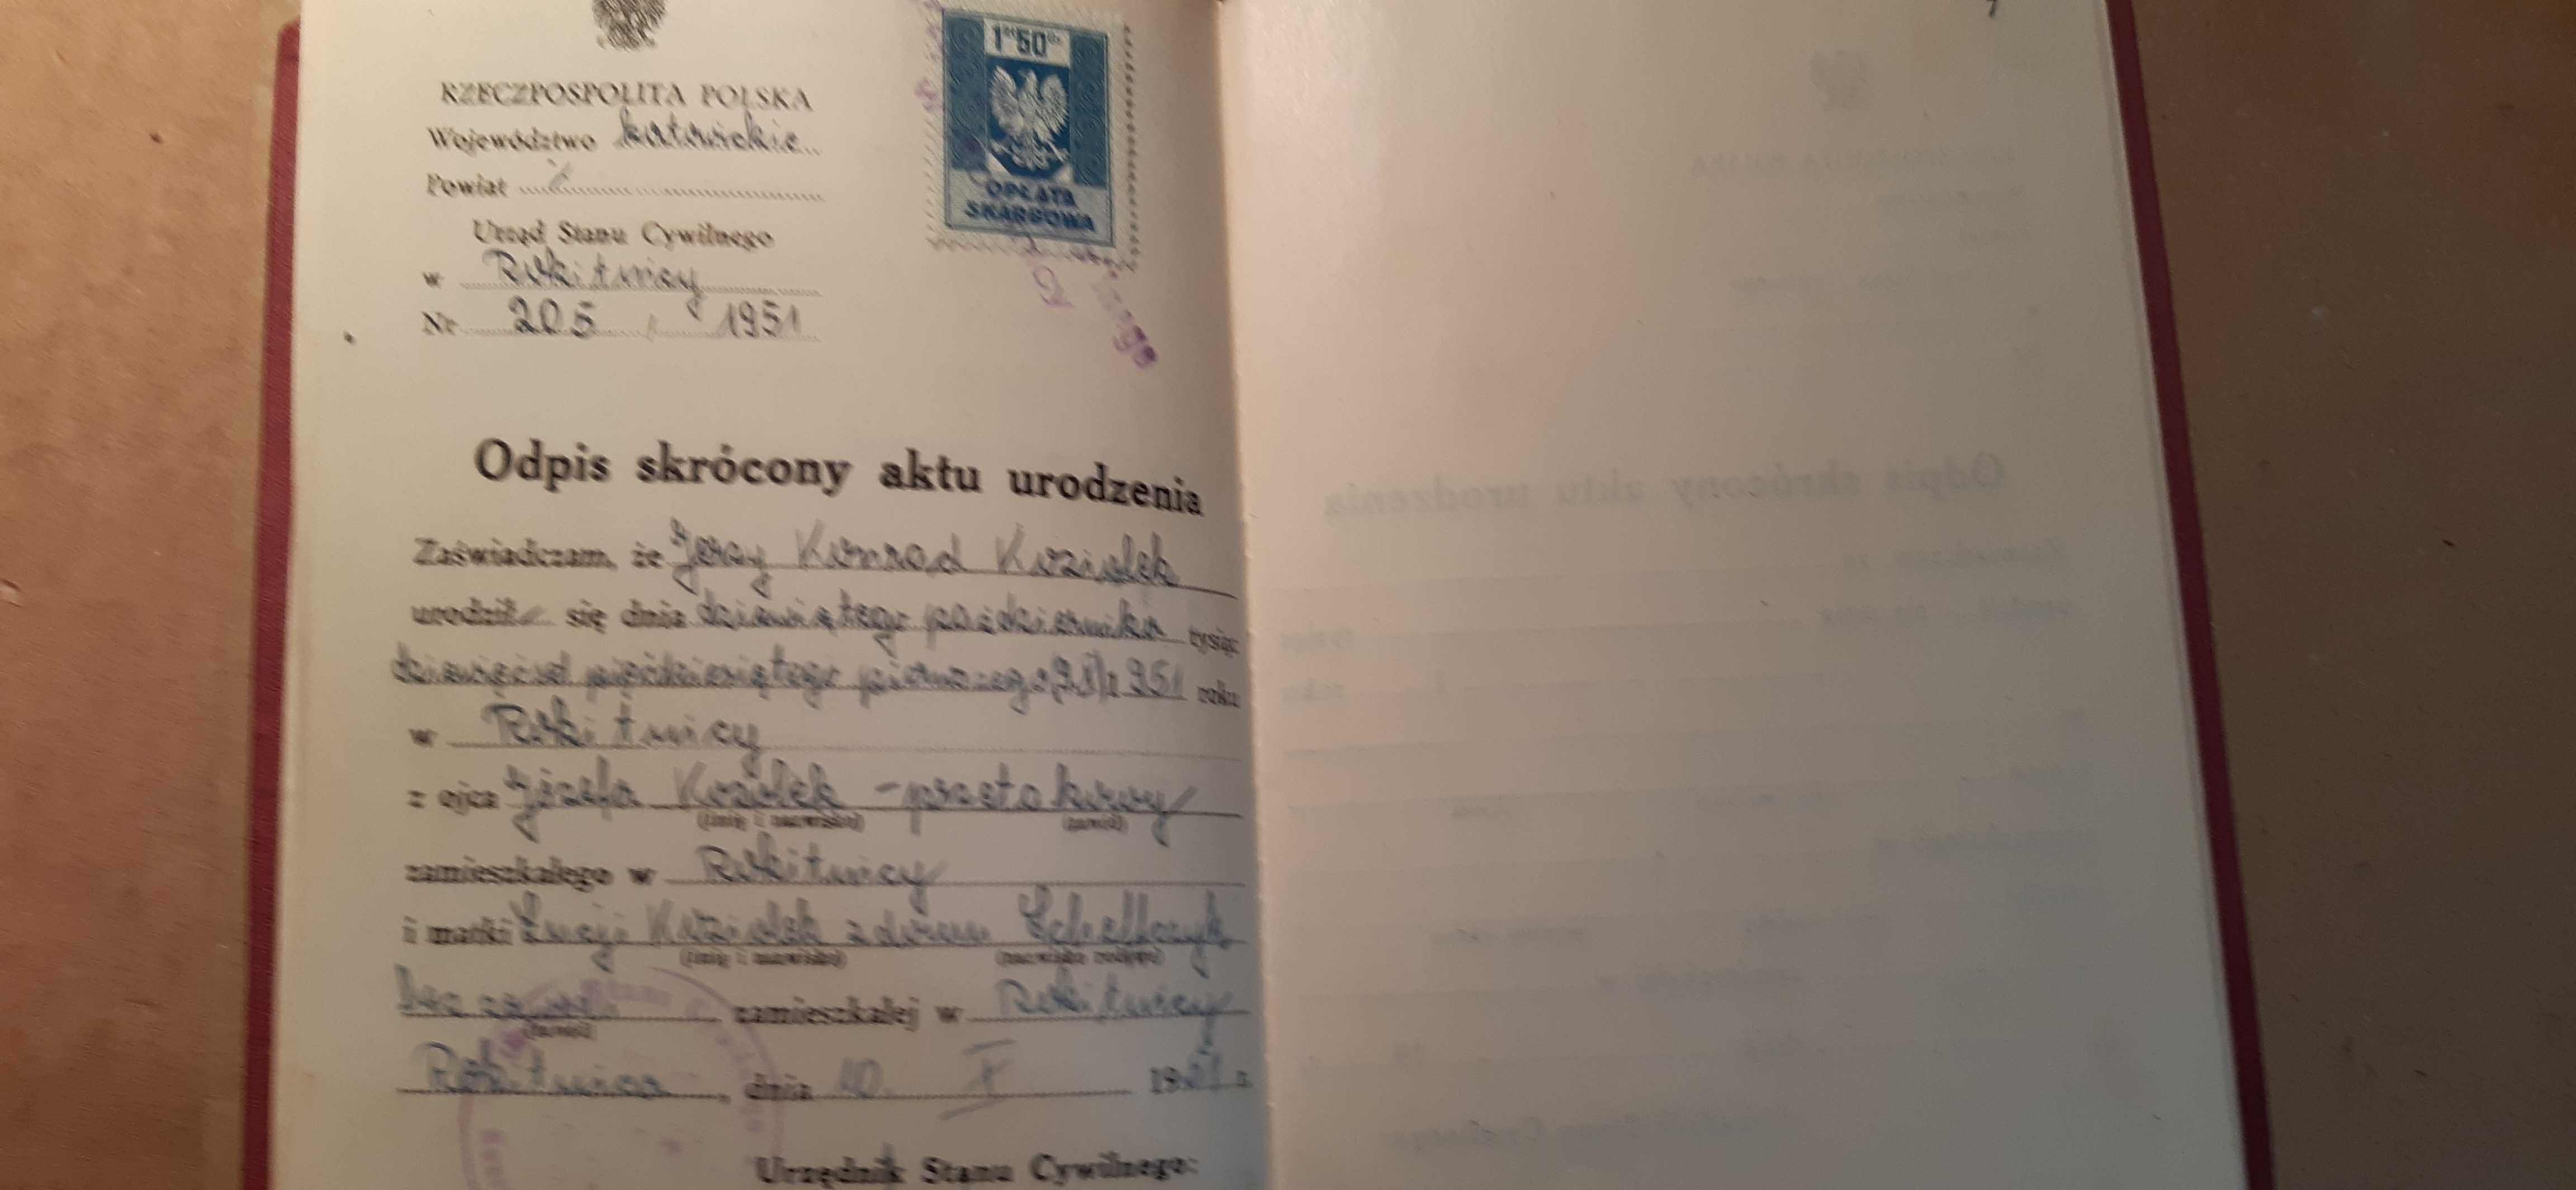 7
1 50
OPŁATA
SKARBOWA
RZECZPOSPOLITA POLSKA
Województwo katowickie
Powiat
Urząd Stanu Cywilnego
w Rokitnicy
Nr 205 / 1951
Odpis skrócony aktu urodzenia
Zaświadczam, że Jerzy Konrad Koziolek
urodził się dnia dziewiątego października tysiąc
dziewięćset pięćdziesiątego pierwszego (9.X) 1951 roku
w Rokitnicy
z ojca Józefa Koziolek –
(imię i nazwisko) (zawód)
zamieszkałego w Rokitnicy
i matki Łucji Koziolek z domu
(imię i nazwisko) (nazwisko rodowe)
bez zawodu zamieszkałej w Rokitnicy
(zawód)
Rokitnica, dnia 10. X 1951 r.
Urzędnik Stanu Cywilnego: